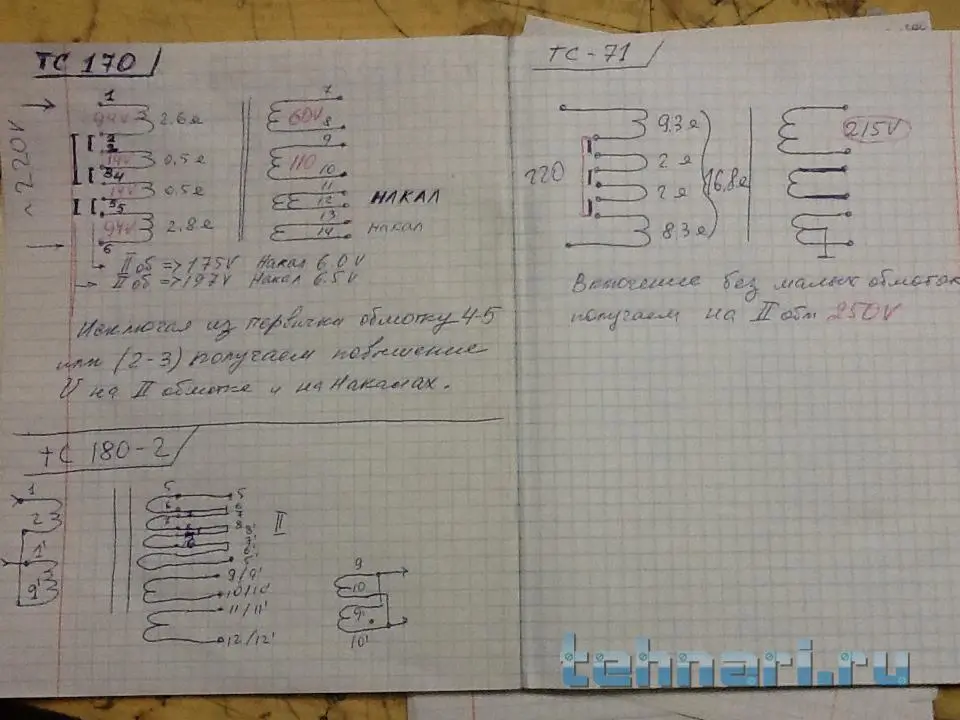 ТС 170
~ 220V
1
94V 2.6 Ω
2
3
14V 0.5 Ω
4
14V 0.5 Ω
5
94V 2.8 Ω
6
7
60V
8
9
110
10
11
12 НАКАЛ
13
14 НАКАЛ
II об => 175V Накал 6.0 V
II об => 197V Накал 6.5 V
Исключая из первички обмотку 4-5
или (2-3) получаем повышение
U на II обмотке и на Накалах.
ТС 180-2
1
2
1'
9'
5 5
6
7
8
8'
7'
6'
5'
II
9/9'
10/10'
11/11'
12/12'
9
10
9'
10'
ТС-71
220
9.3 Ω
2 Ω
2 Ω
8.3 Ω
16,8 Ω
215V
Включение без малых обмоток
получаем на II обм 250V
tehnari.ru